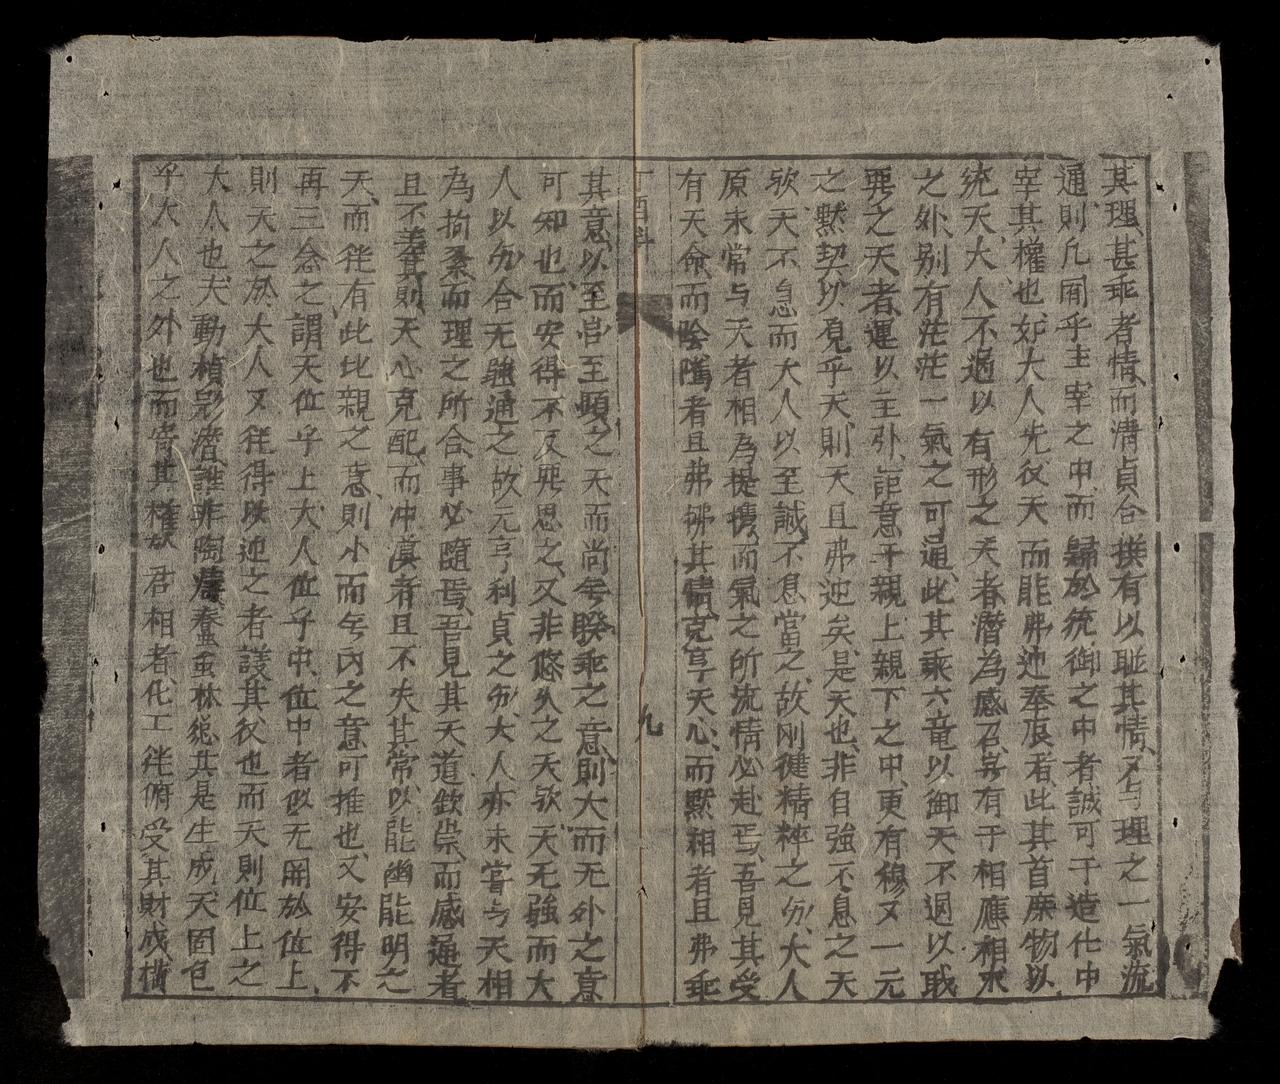 其理甚乖者情而清貞合撰有以耻其情又与理之一氣流
通則凢関乎主宰之中而歸於統御之中者誠可于造化中
宰其權也如大人先後天而能弗违奉辰者此其首庶物以
統天大人不過以有形之天者潛為感召字有于相應相求
之外别有茫茫一氣之可通此其乘六竜以御天不過以戢
之天者運以主引詎意于親上親下之中更有穆又一元
之黙契以覓乎天則天且弗违矣是天也非自強不息之天
欤天不息而大人以至誠不息當之故刚健精粹之分大人
原未常与天者相為提携而氣之所流情必赴焉吾見其受
有天命而陰隲者且弗拂其情克享天心而黙相者且弗乖
丁酉科
九
其意以至高至頤之天而尚无睽乖之意則大而无外之意
可知也而安得不反思之又非悠久之天欤天无強而大
人以分合无強通之故元亨利貞之分大人亦未嘗与天相
為拘泥而理之所合事必隨焉吾見其天道欽崇而感通者
且不差貸則天心克配而冲漠者且不失其常以能幽能明之
天而徃有此比親之意則小而无内之意可推也又安得不
再三念之謂天位乎上大人位乎中位中者似无関於位上
則天之於大人又徃得以迎之者護其後也而天則位上之
大人也夫動植濟誰非陶蠢虫林総其是生成天固包
乎大人之外也而寄其權於君相者化工徃俯受其財成